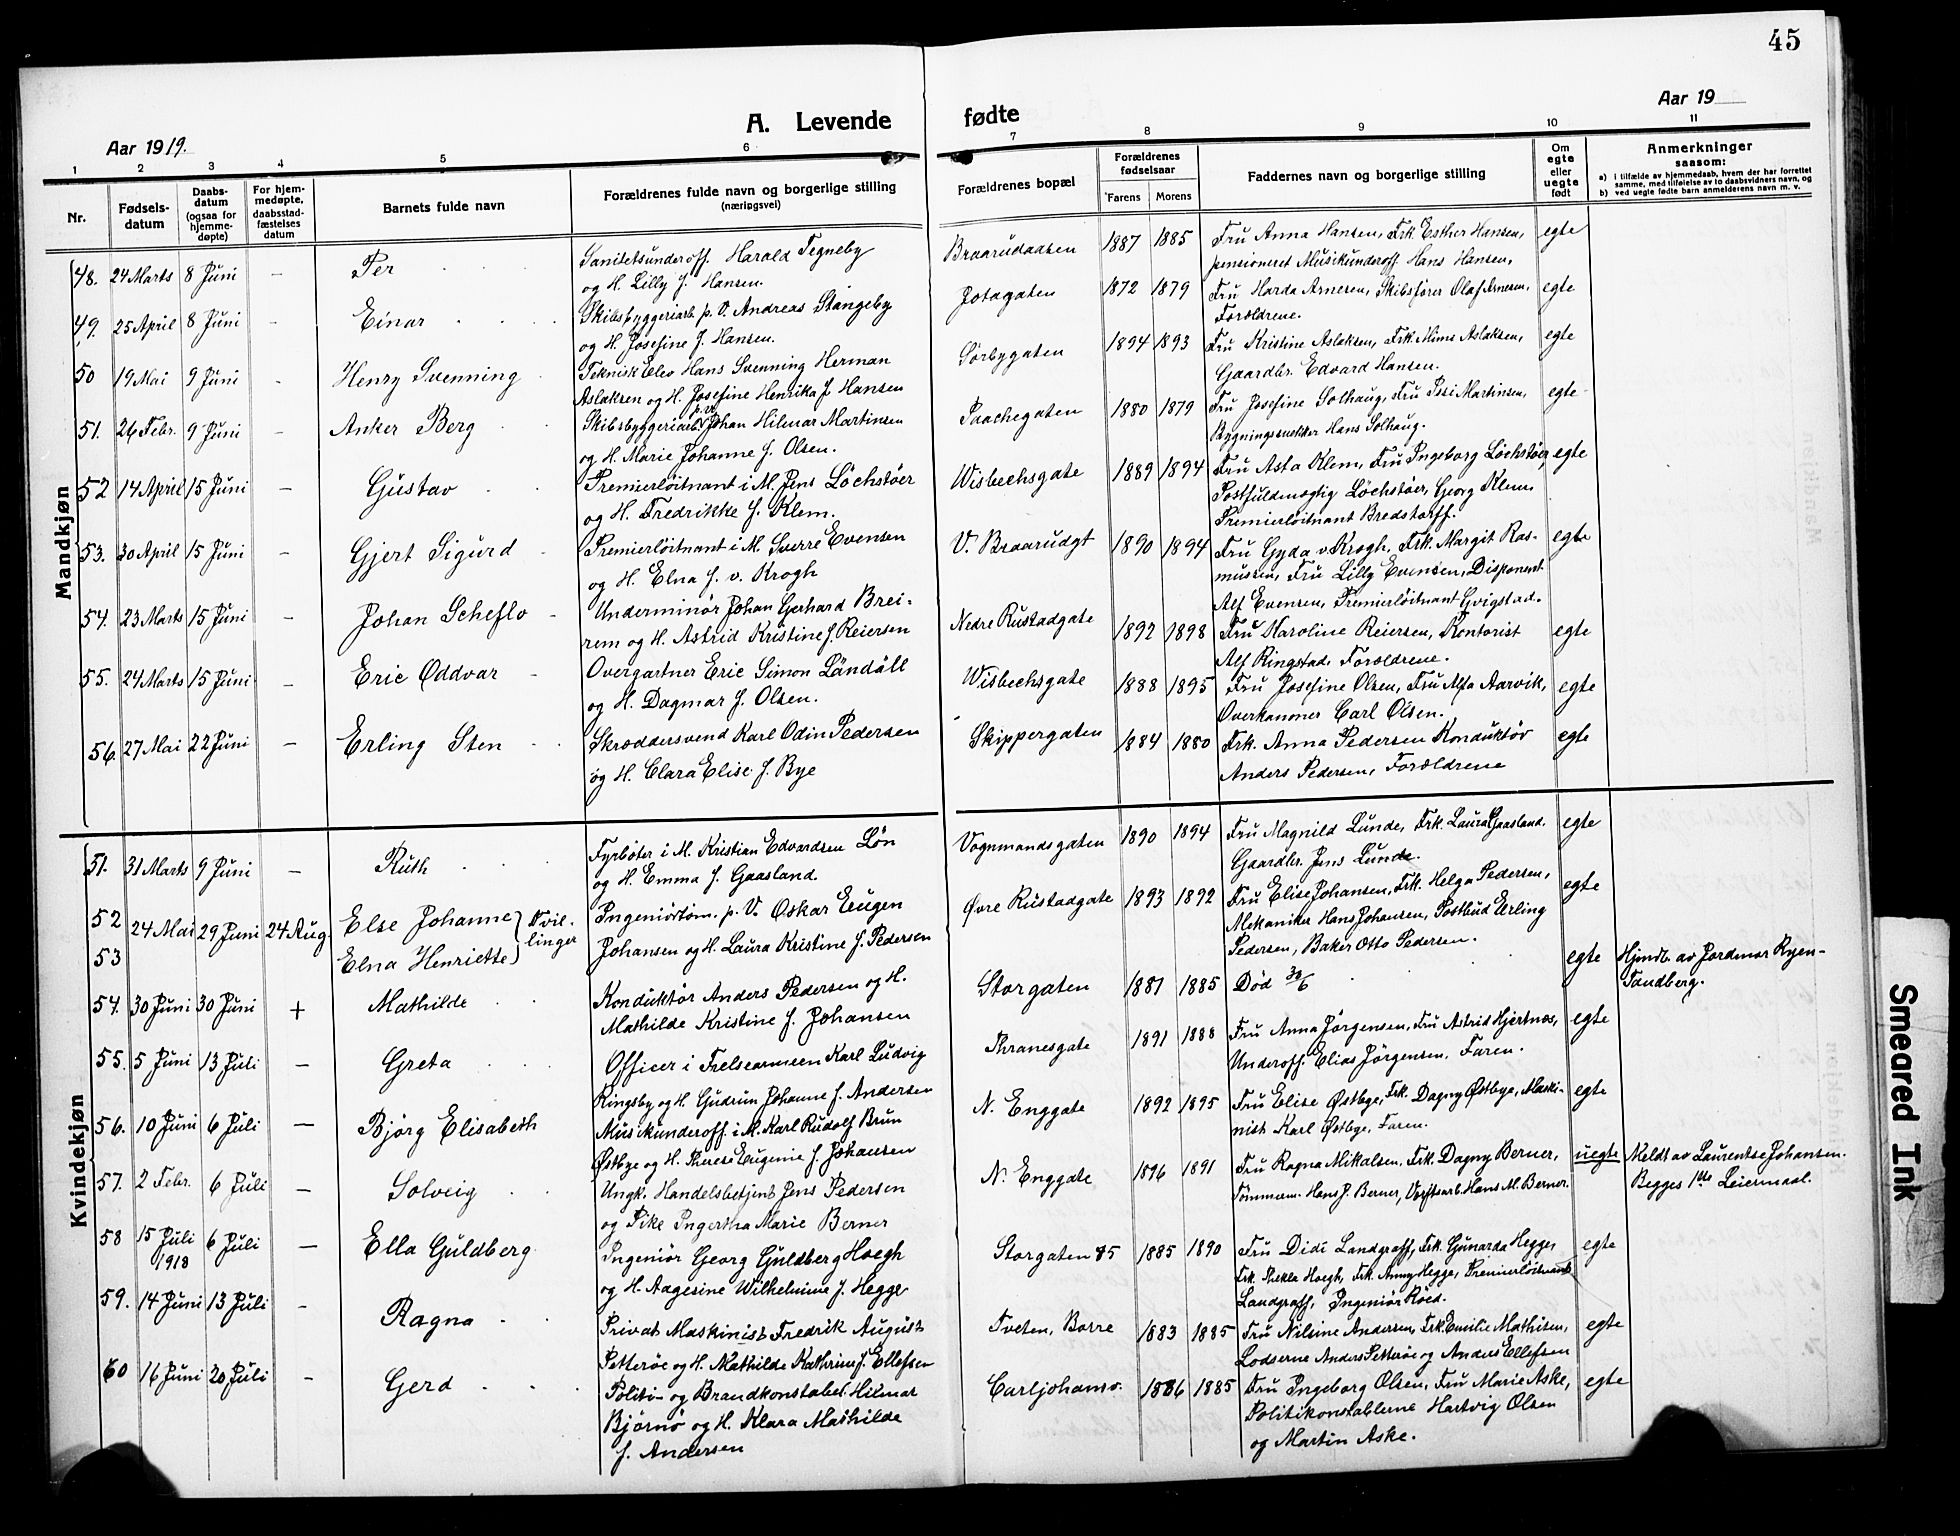 45
A. Levende fødte
Aar 1919.
Aar 19
1 2 3 4 5 6 7 8 9 10 11
Nr.
Fødsels-
datum
Daabs-
datum
(ogsaa for
hjemme-
døpte)
For hjem-
medøpte,
daabsstad-
fæstelses
datum
Barnets fulde navn
Forældrenes fulde navn og borgerlige stilling
(næringsvei)
Forældrenes bopæl
Forældrenes
fødselsaar
Farens Morens
Faddernes navn og borgerlige stilling
Om
egte
eller
uegte
født
Anmerkninger
saasom:
a) i tilfælde av hjemmedaab, hvem der har forrettet
samme, med tilføielse av to daabsvidners navn, og
b) ved uegte fødte barn anmelderens navn m. v.
Mandkjøn
48. 24 Marts 8 Juni – Per
Sanitetsunderoff. Harald Tegneby
og H. Lilly f. Hansen.
Braarudaasen 1887 1885
Fru Anna Hansen, Frk. Esther Hansen,
pensioneret Musikunderoff. Hans Hansen,
egte
49. 25 April 8 Juni - Einar
Skibsbyggeriarb. p. V. Andreas Stangeby
og H. Josefine f. Hansen.
Jotagaten 1872 1879
Fru Harda Arnesen, Skibsfører Olaf Arnesen,
Forældrene.
egte
50 19 Mai 9 Juni - Henry Svenning
Teknisk Elev Hans Svenning Herman
Aslaksen og H. Josefine Henrika f. Hansen
Sørbygaten 1894 1893
Fru Kristine Aslaksen, Frk. Mimi Aslaksen,
Gaardbr. Edvard Hansen.
egte
51. 26 Febr. 9 Juni - Anker Berg
Skibsbyggeriarb. p.v. Johan Hilmar Martinsen
og H. Marie Johanne f. Olsen.
Paachegaten 1880 1879
Fru Josefine Solhaug, Fru Pssi Martinsen,
Hans Solhaug.
egte
52 14 April 15 Juni – Gustav
Premierløitnant i M. Jens Löchstöer
og H. Fredrikke f. Klem.
Wisbechsgate 1889 1894
Fru Asta Klem, Fru Ingeborg Löchstöer,
Postfuldmægtig Löchstöer, Georg Klem,
Premierløitnant Bredstorff.
egte
53. 30 April 15 Juni – Gjert Sigurd
Premierløitnant i M. Sverre Evensen
og H. Elna f. v. Krogh
V. Braarudgt 1890 1894
Fru Gyda v. Krogh, Frk. Margit Ras-
mussen, Fru Lilly Evensen, Disponent
Alf Evensen, Premierløitnant Gvigstad.
egte
54. 23 Marts 15 Juni – Johan Scheflo
Underminör Johan Gerhard Brei-
rem og H. Astrid Kristine f. Reiersen
Nedre Rustadgate 1892 1898
Fru Karoline Reiersen, Kontorist
Alf Ringstad, Forældrene.
egte
55. 24 Marts 15 Juni – Eric Oddvar
Overgartner Eric Simon Landäll
og H. Dagmar f. Olsen.
Wisbechsgate 1888 1895
Fru Josefine Olsen, Fru Alfa Aarvik,
Overkanoner Carl Olsen.
egte
56. 27 Mai 22 Juni – Erling Sten
Skræddersvend Karl Odin Pedersen
og H. Clara Elise f. Bye
Skippergaten 1884 1880
Frk. Anna Pedersen Konduktør
Anders Pedersen, Forældrene
egte
Kvindekjøn
51. 31 Marts 9 Juni – Ruth
Fyrbøter i M. Kristian Edvardsen Løn
og H. Emma f. Gaasland.
Vognmandsgaten 1890 1894
Fru Magnild Lunde, Frk. Laura Gaasland.
Gaardbr. Jens Lunde.
egte
52 53 24 Mai 29 Juni 24 Aug. Else Johanne
Elna Henriette
Tvil-
linger
Ingeniörtöm. p. V. Oskar Eugen
Johansen og H. Laura Kristine f. Pedersen
Øvre Rustadgate 1893 1892
Fru Elise Johansen, Frk. Helga Pedersen,
Mekaniker Hans Johansen, Postbud Erling
Pedersen, Baker Otto Pedersen.
egte
54. 30 Juni 30 Juni + Mathilde
Konduktör Anders Pedersen og H.
Mathilde Kristine f. Johansen
Storgaten 1887 1885
Död 30/6
egte
Hjmdb. av Jordmor Ryen-
Sandberg.
55. 5 Juni 13 Juli – Greta
Officer i Frelsesarmeen Karl Ludvig
Ringsby og H. Gudrun Johanne f. Andersen
Thranesgate 1891 1888
Fru Anna Jörgensen, Fru Astrid Hjertnes,
Underoff. Elias Jörgensen, Faren.
egte
56. 10 Juni 6 Juli – Bjørg Elisabeth
Musikunderoff. i M. Karl Rudolf Brun
Østbye og H. Therese Eugenie f. Johansen
N. Enggate 1892 1895
Fru Elise Østbye, Frk. Dagny Østbye, Maski-
nist Karl Østbye, Faren.
egte
57. 2 Febr. 6 Juli – Solveig
Ungk. Handelsbetjent Jens Pedersen
og Pike Ingertha Marie Berner
N. Enggate 1896 1891
Fru Ragna Mikalsen, Frk. Dagny Berner,
Tømmerm. Hans J. Berner, Verftsarb. Hans M. Berner.
uegte
Meldt av Laurentse Johansen.
Begges 1ste Leiermaal.
58 15 Juli 1918 6 Juli – Ella Guldberg
Ingeniör Georg Guldberg Høegh
og H. Aagesine Wilhelmine f. Hegge
Storgaten 85 1885 1890
Fru Didi Landgraff, Frk. Gunarda Hegge,
Frk. Thekla Høegh, Frk. Anny Hegge, Premierløitnant
Landgraff, Ingeniör Röed.
egte
59. 14 Juni 13 Juli - Ragna
Privat Maskinist Fredrik August
Petterøe og H. Mathilde Kathrine f. Ellefsen
Tveten, Borre 1883 1885
Fru Nilsine Andersen, Frk. Emilie Mathisen,
Lodserne Anders Petterøe og Anders Ellefsen
egte
60 16 Juni 20 Juli – Gerd
Politi- og Brandkonstabel Hilmar
Bjørnö og H. Klara Mathilde
f. Andersen
Carljohansv. 1886 1885
Fru Ingeborg Olsen, Fru Marie Aske,
Politikonstablerne Hartvig Olsen
og Martin Aske.
egte
Smeared Ink